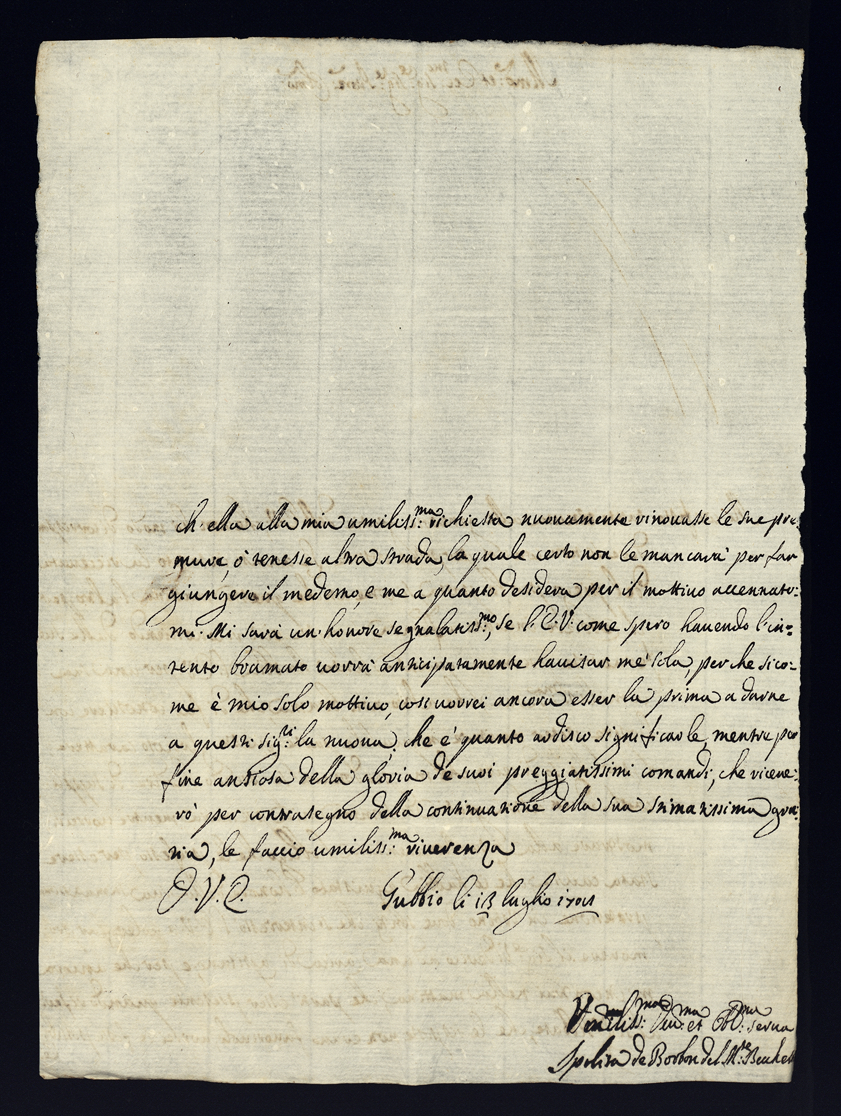 ch'ella alla mia umiliss:ma richiesta nuouamente rinouasse le sue pre-
mure, ò tenesse altra strada, la quale certo non le mancarà per far
giungere il medemo, e me a quanto desidera per il mottiuo accennato:
mi. Mi sarà un honore segnalatiss:mo, se l'E.V. come spero hauendo l'in-
tento bramato uorrà anticipatamente hauisar me sola, perche sico-
me è mio solo mottiuo, così uorrei ancora esser la prima a darne
a questi sig:ri la nuoua, che è quanto ardisco significarle, mentre per
fine ansiosa della gloria de suoi preggiatissimi comandi, che riceue-
rò per contrasegno della continuatione della sua stimatissima gra-
tia, le faccio umiliss:ma riuerenza
D.V.E. Gubbio li 13 luglio
Umiliss:ma Deu:ma et Obl:ma serua
de Borbon del M:te